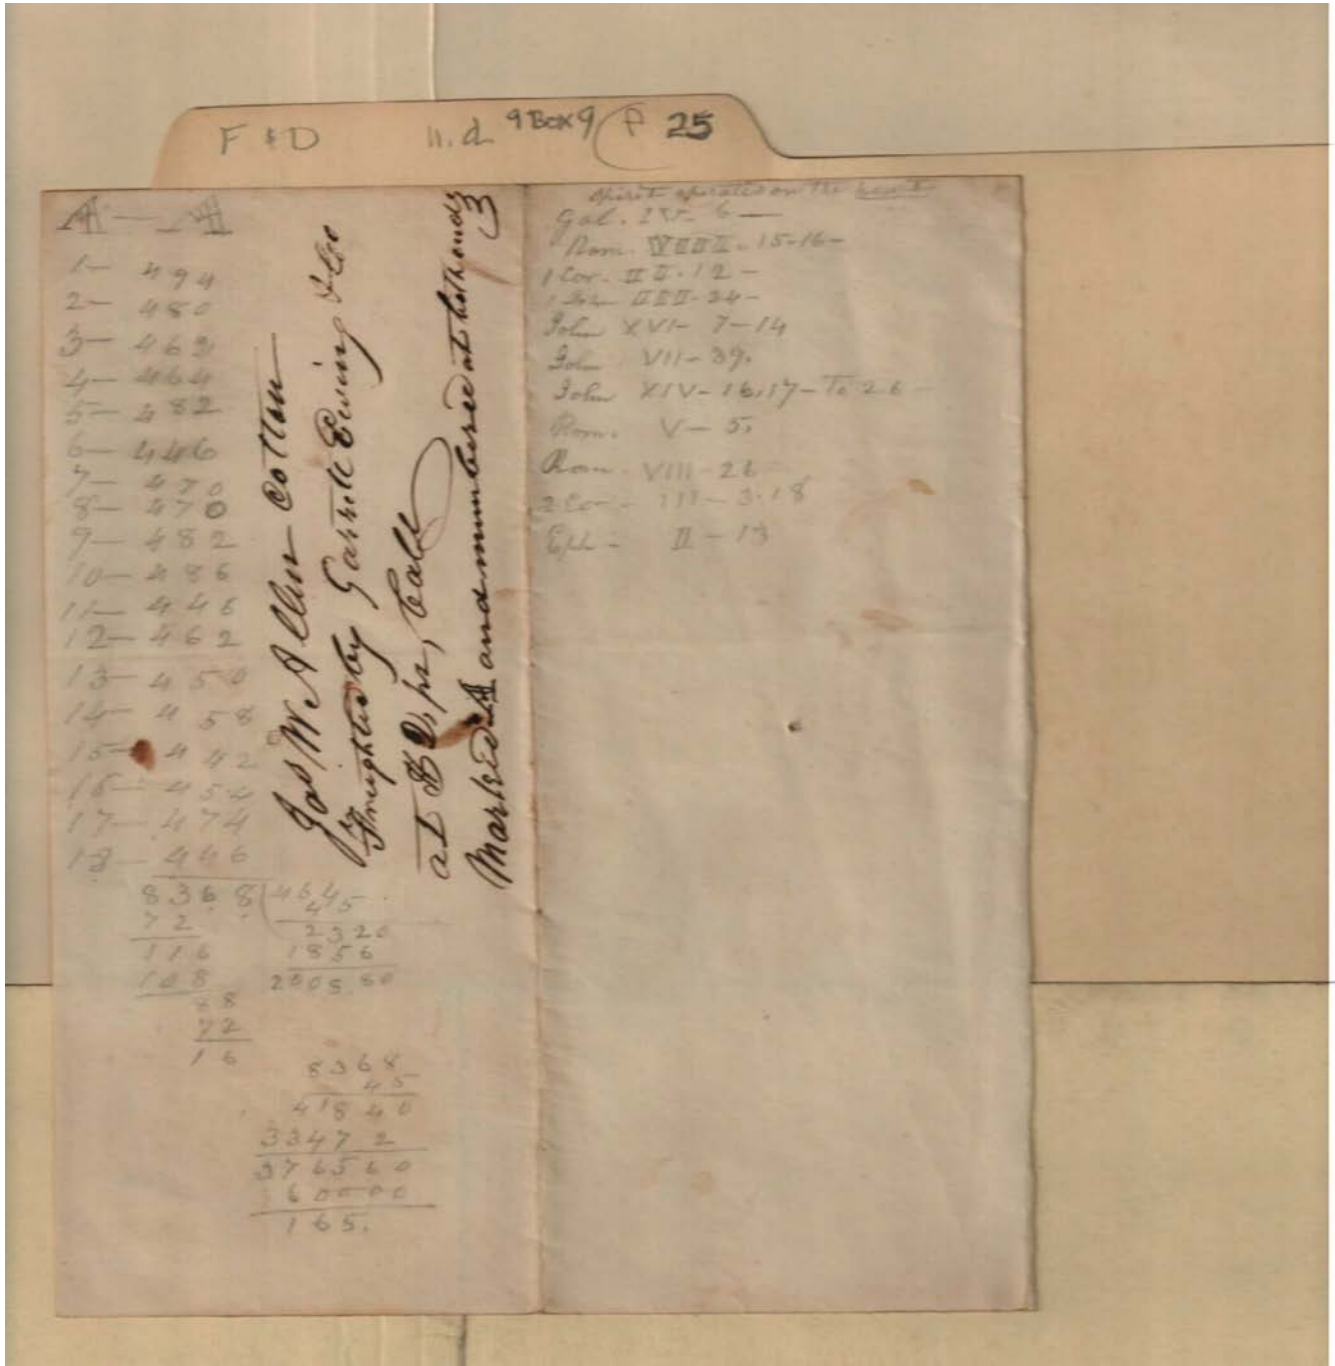 F & D n.d. 9 Box 9 (P 25
A — A
1— 494
2— 480
3— 462
4— 464
5— 482
6— 446
7— 470
8— 470
9— 482
10— 486
11— 446
12— 462
13— 450
14— 458
15— 442
16— 454
17— 474
18— 446
8368 464
72 45
116 2320
108 1856
88 2008.80
72
16
8368
45
41840
33472
376560
60000
165.
Jas W Allen Cotton
Freighted by Garrett Ewing &
at
Marked A and numbered at both ends
3
Spirit operates on the heart
Gal. IV- 6—
Rom. VIII- 15-16-
1 Cor. II. 12-
1 John III- 24-
John XVI- 7-14
John VII- 39.
John XIV- 16,17- To 26-
Rom. V- 5.
Rom. VIII- 26
2 Cor- III- 3.18
Eph- II- 13